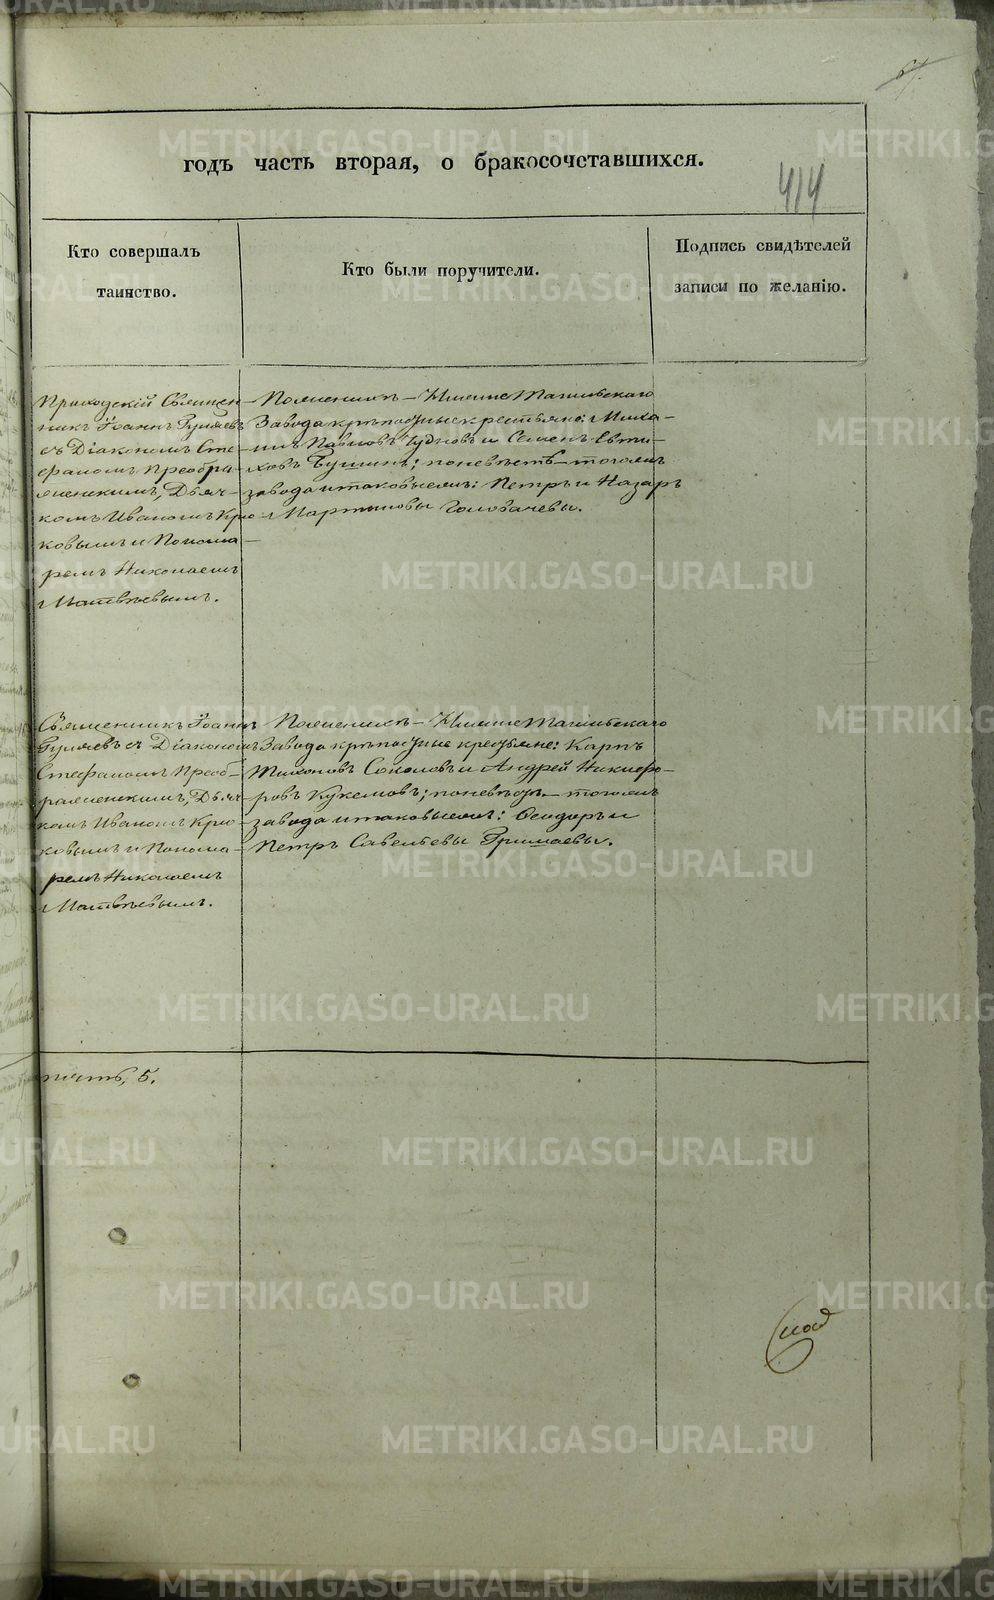 67.
годъ часть вторая, о бракосочетавшихся.
414
Кто совершалъ
таинство.
Кто были поручители.
Подпись свидѣтелей
записи по желанію.
Приходскій Священ-
никъ Іоаннъ Гуляевъ
съ Діакономъ Сте-
фаномъ Преобра-
женскимъ, Дьяч-
комъ Иваномъ Крю-
ковымъ и Понома-
ремъ Николаемъ
Матвѣевымъ.
По женихѣ – Нижне Тагильскаго
Завода крѣпостные крестьяне: Миха-
илъ Павловъ Чудновъ и Семенъ Евти-
ховъ ; по невѣстѣ – тогожъ
завода и таковые жъ: Петръ и Назаръ
Мартиновы Голобачевы.
Священникъ Іоаннъ
Гуляевъ съ Діакономъ
Стефаномъ Преоб-
раженскимъ, Дьяч-
комъ Иваномъ Крю-
ковымъ и Понома-
ремъ Николаемъ
Матвѣевымъ.
По женихѣ – Нижне Тагильскаго
Завода крѣпостные крестьяне: Карпъ
Тихоновъ Соколовъ и Андрей Никифо-
ровъ ; по невѣстѣ – тогожъ
завода и таковые жъ: Ѳеодоръ и
Петръ Савельевы .
пять, 5.
METRIKI.GASO-URAL.RU